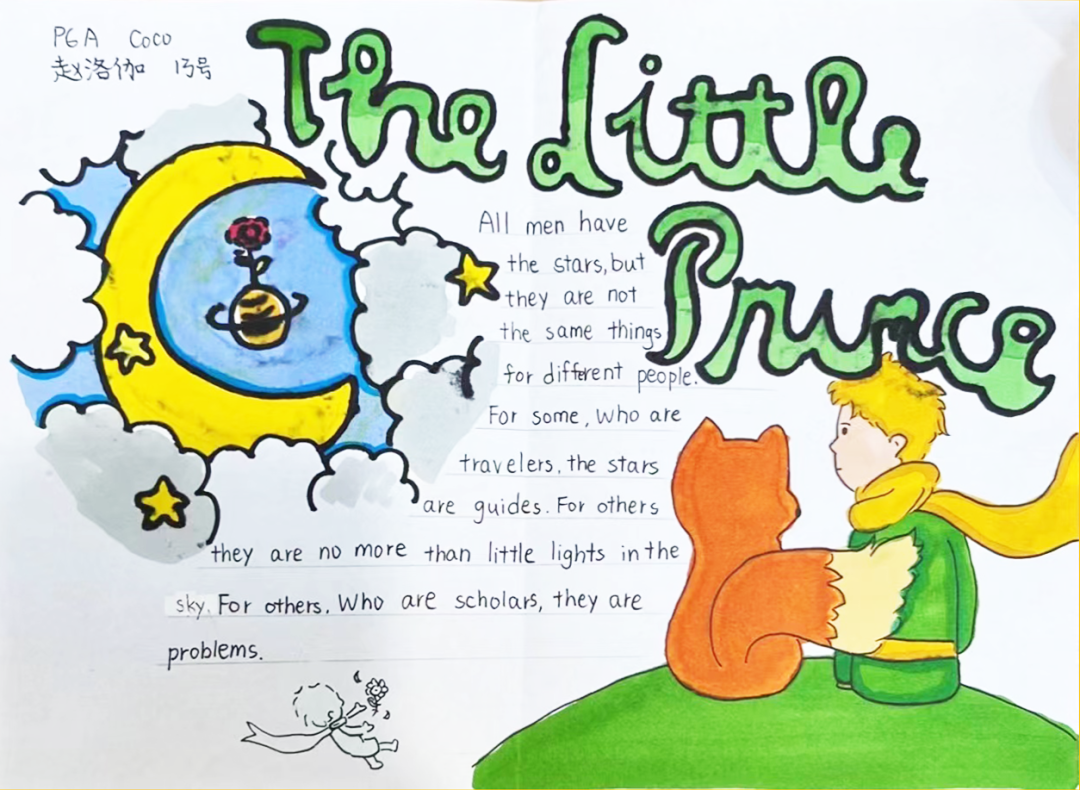 P6A Coco
赵洛伽 13号
The Little
Prince
All men have
the stars, but
they are not
the same things
for different people.
For some, who are
travelers, the stars
are guides. For others
they are no more than little lights in the
sky. For others. Who are scholars, they are
problems.